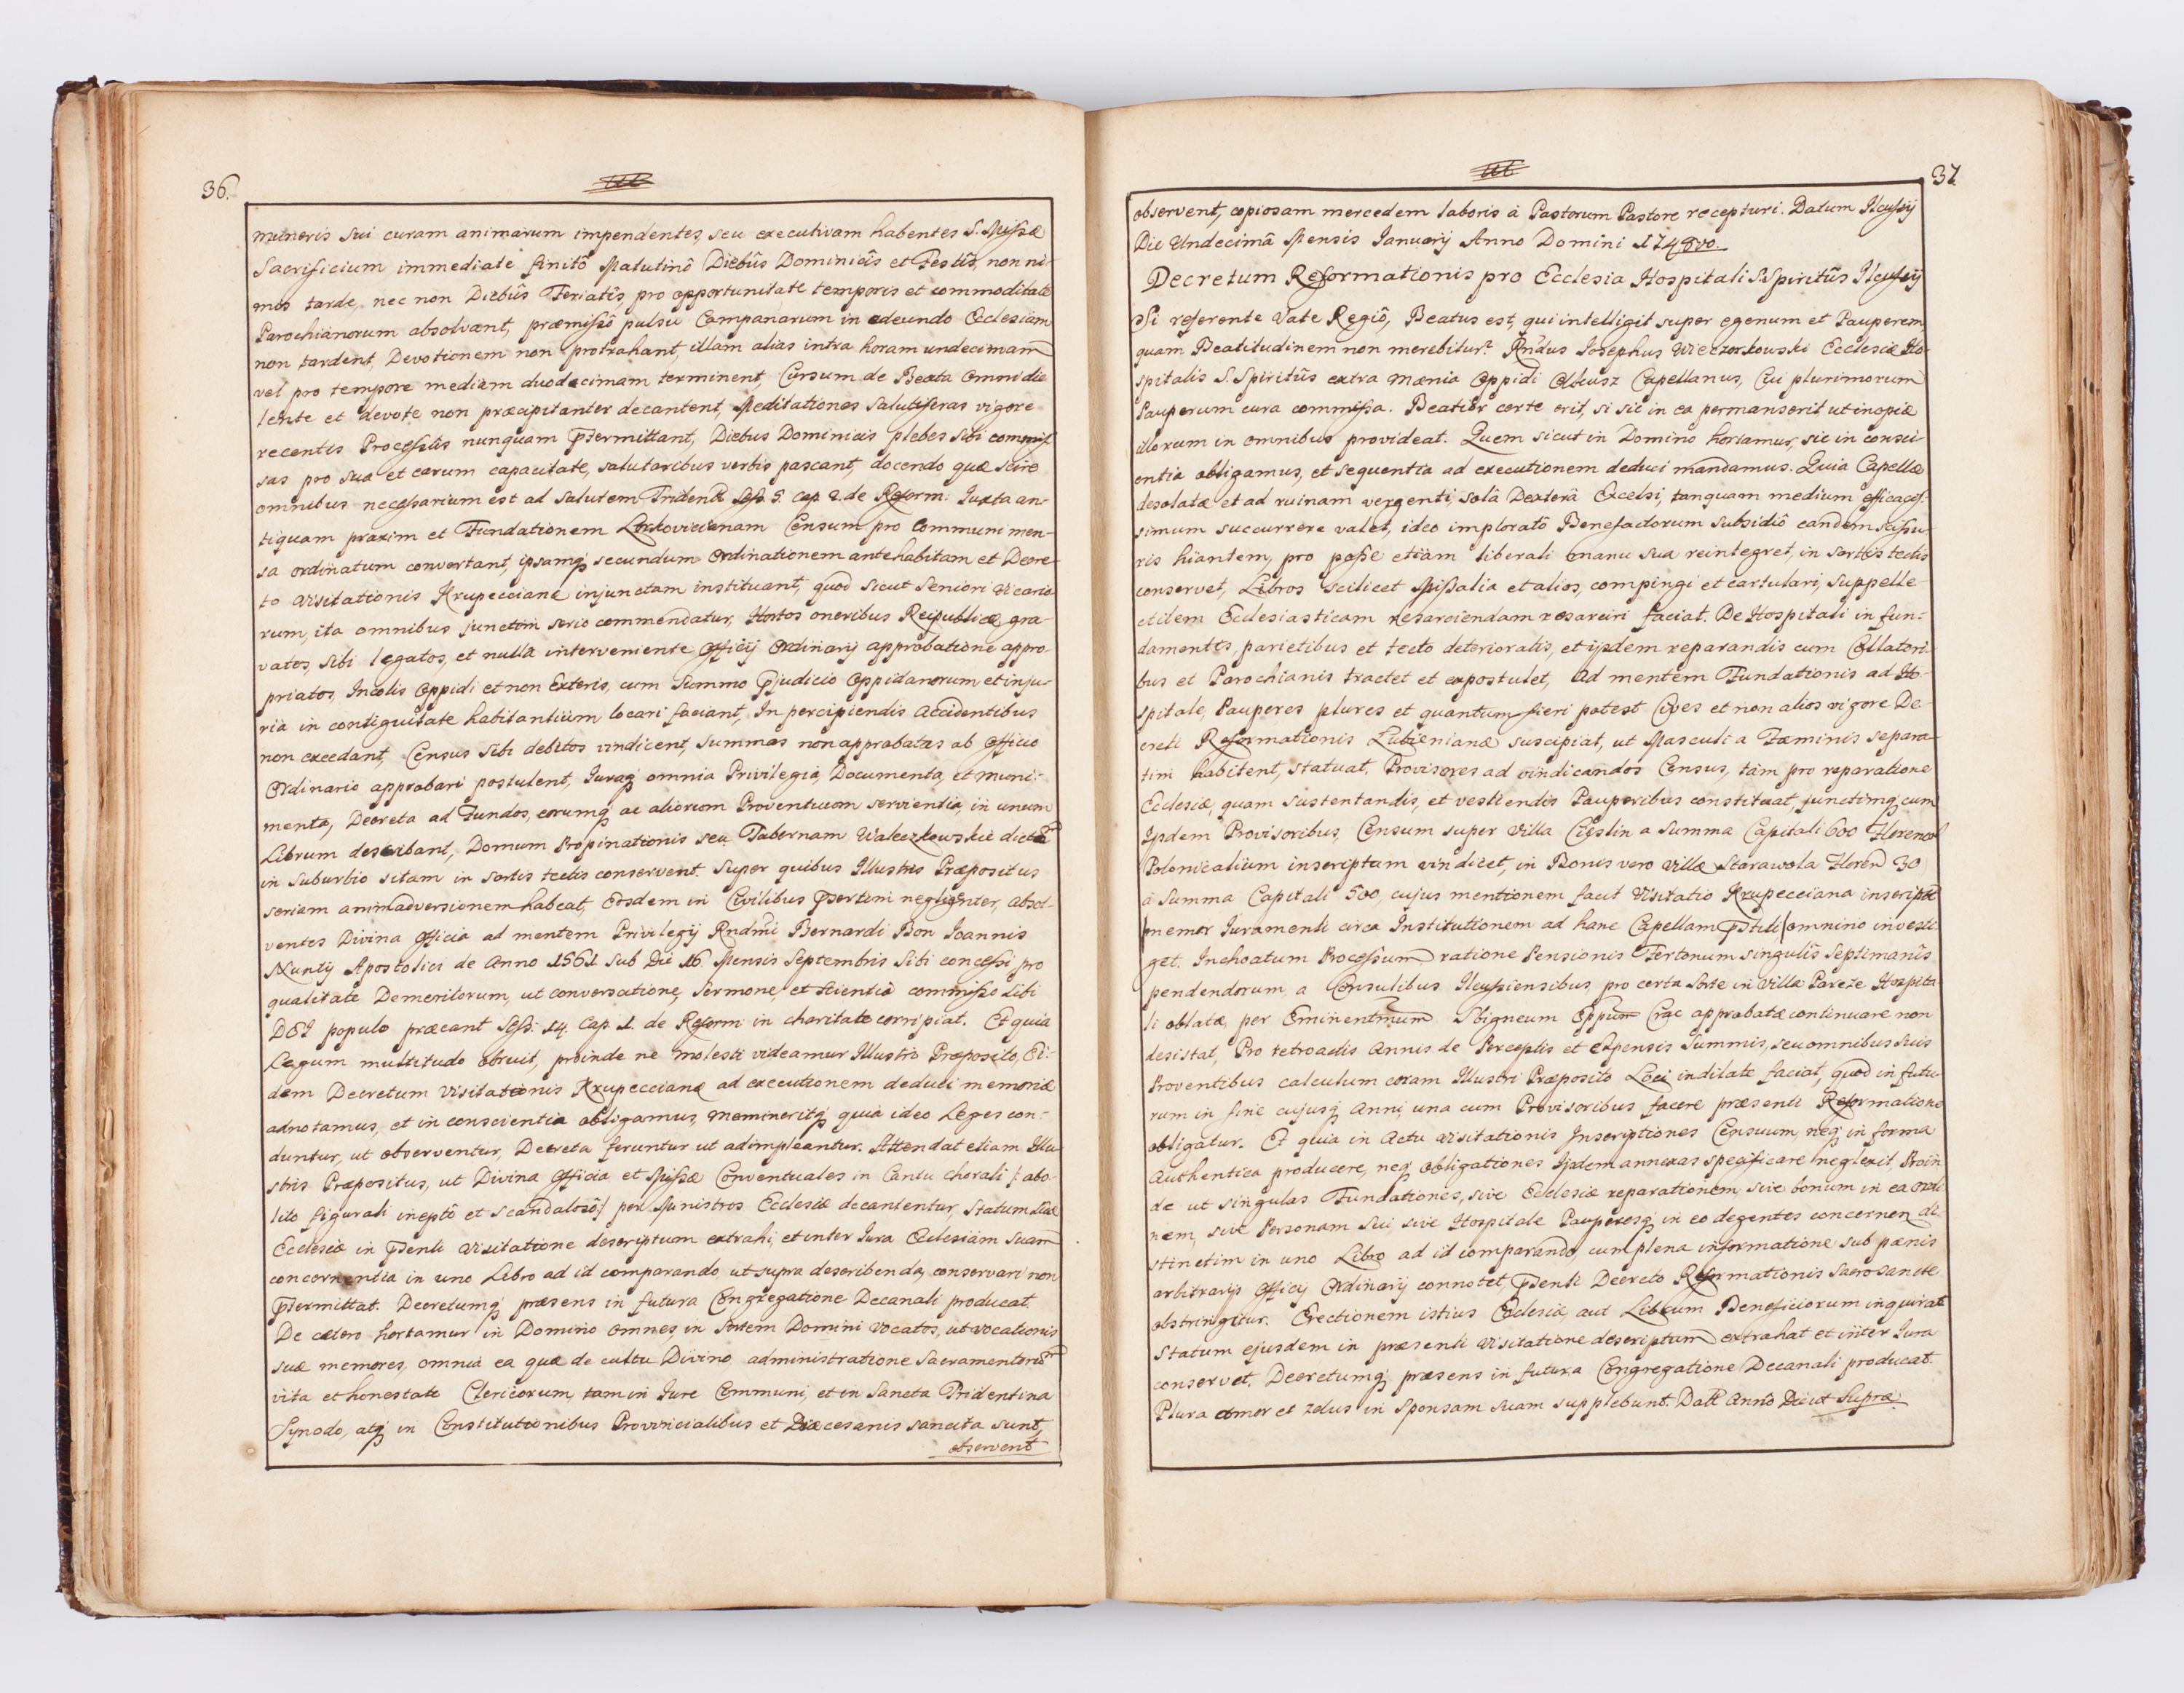 36.
muneris sui curam animarum impendentes, seu executivam habentes S. Missæ
Sacrificium immediate finitô Matutinô Diebûs Dominicîs et Festîs, non ni-
mos tarde, nec non Diebûs Feriatîs, pro opportunitate temporis et commoditate
Parochianorum absolvant, præmissô pulsu Campanarum in adeundo Ecclesiam
non tardent, Devotionem non protrahant, illam alias intra horam undecimam
vel pro tempore mediam duodecimam terminent, Cursum de Beata omni die
lente et devote non præcipitanter decantent, Meditationes salutiferas vigore
recentis Processûs nunquam prtermittant, Diebus Dominicis plebes sibi commis-
sas pro sua et earum capacitate, salutaribus verbis pascant, docendo quæ scire
omnibus necessarium est ad salutem Trident: Sess. 5. cap. 2. de Reform: Juxta an-
tiquam praxim et Fundationem Censum pro Communi men-
sa ordinatum convertant, ipsamq; secundum ordinationem antehabitam et Decre-
to Visitationis Krupeccianæ injunctam instituant, quod sicut Seniori Vicario
rum, ita omnibus junctim serio commendatur, Hortos oneribus Reipublicæ gra-
vatos, sibi legatos, et nulla interveniente Officij Ordinarij approbatione appro-
priatos, Incolis Oppidi et non Exteris, cum Summo prjudicio Oppidanorum et inju-
ria in contiguitate habitantium locari faciant, In percipiendis accidentibus
non excedant, Census sibi debitos vindicent, summas non approbatas ab Officio
Ordinario approbari postulent, Juraq; omnia Privilegia, Documenta, et muni-
menta, Decreta ad Fundos, eorumq; ac aliorum Proventuum servientia, in unum
Librum describant, Domum Propinationis seu Tabernam Waleczkowskie dictã
in Suburbio sitam in sartis tectis conservent. Super quibus Illustris Præpositus
seriam animadversionem habeat, Eosdem in Civilibus prsertim negligenter, absol-
ventes Divina Officia ad mentem Privilegij Rndmi Bernardi Bon Joannis
Nuntij Apostolici de Anno 1561 sub Die 16 Mensis Septembris sibi concessi pro
qualitate Demeritorum, ut conversatione, sermone, et scientia commisso sibi
DEI populo præeant Sess: 14. Cap. 1. de Reform in charitate corripiat. Et quia
Legum multitudo obruit, proinde ne molesti videamur Illustri Præposito, Ei-
dem Decretum Visitationis Krupeccianæ ad executionem deduci memoriæ
adnotamus, et in conscientia obligamus, meminerit q; quia ideo Leges con-
duntur, ut observentur, Decreta feruntur ut adimpleantur. Attendat etiam Illu-
stris Præpositus, ut Divina Officia et Missæ Conventuales in Cantu chorali /: abo-
lito figurali ineptô et scandalosô :/ per Ministros Ecclesiæ decantentur, Statum suæ
Ecclesiæ in prsenti Visitatione descriptum extrahi, et inter Jura Ecclesiam suam
concernentia in uno Libro ad id comparando, ut supra describenda, conservari non
prtermittat. Decretumq; præsens in futura Congregatione Decanali producat.
De cætero hortamur in Domino omnes, in sortem Domini vocatos, ut vocationis
suæ memores, omnia ea quæ de cultu Divino, administratione Sacramentorũ
vita et honestate Clericorum, tam in Jure Communi, et in Sancta Tridentina
Synodo, atq; in Constitutionibus Provincialibus et Diæcesanis sancita sunt,
observent
37
observent, copiosam mercedem laboris à Pastorum Pastore recepturi. Datum Ilcussij
Die Undecimâ Mensis Januarij Anno Domini 1748vo
Decretum Reformationis pro Ecclesia Hospitali S. Spiritûs Ilcussij
Si referente Vate Regiô, Beatus est, qui intelligit super egenum et Pauperem,
quam Beatitudinem non merebitur? Rndus Josephus Wieczorkowski Ecclesiæ Ho-
spitalis S. Spiritûs extra mænia Oppidi Olkusz Capellanus, Cui plurimorum
Pauperum cura commissa. Beatior certe erit, si sic in ea permanserit, ut inopiæ
illorum in omnibus provideat. Quem sicut in Domino hortamur, sic in consci-
entia obligamus, et sequentia ad executionem deduci mandamus. Quia Capellæ
desolatæ et ad ruinam vergenti, solâ Dexterâ Excelsi, tanquam medium efficacis-
simum succurrere valet, ideo imploratô Benefactorum subsidiô eandem scissu-
ris hiantem, pro posse etiam liberali manu sua reintegret, in sartis tectis
conservet, Libros scilicet Missalia et alios, compingi et cartulari, suppelle-
ctilem Ecclesiasticam resarciendam resarciri faciat. De Hospitali in fun-
damentis, parietibus et tecto deterioratis, et ijsdem reparandis cum Collatori-
bus et Parochianis tractet et expostulet, Ad mentem Fundationis ad Ho-
spitale, Pauperes plures et quantum fieri potest Cives et non alios vigore De-
creti Reformationis Lubienianæ suscipiat, ut Masculi a Fæminis separa-
tim habitent, statuat. Provisores ad vindicandos Census, tam pro reparatione
Ecclesiæ, quam sustentandis, et vestiendis Pauperibus constituat, junctimq; cum
Ijsdem Provisoribus, Censum super Villa Cieslin a Summa Capitali 600 Florenorũ
Polonicalium inscriptum vindicet, in Bonis vero Villæ Starawola Floren 30
à Summa Capitali 500, cujus mentionem facit Visitatio Krupecciana inscriptæ
/memor Juramenti circa Institutionem ad hanc Capellam prstiti/ omnino investi-
get. Inchoatum Processum ratione Pensionis Fertonum singulis septimanîs
pendendorum, a Consulibus Ilcussiensibus pro certa sorte in Villa Pareze Hospita
li oblatæ, per Eminentmum Sbigneum Eppum Crac approbatæ continuare non
desistat, Pro retroactis Annis de Perceptis et Expensis Summis, seu omnibus suis
Proventibus calculum coram Illustri Præposito Loci indilate faciat, quod in futu-
rum in fine cujusq; Anni una cum Provisoribus facere præsenti Reformatione
obligatur. Et quia in Actu Visitationis Inscriptiones Censuum, neq; in forma
Authentica producere, neq; obligationes Ijsdem annexas specificare neglexit, Proin-
de ut singulas Fundationes, sive Ecclesiæ reparationem sive bonum in ea ordi-
nem, sive Personam sui, sive Hospitale Pauperesq; in eo degentes concernen di-
stinctim in uno Libro ad id comparando, cum plena informatione sub pænis
arbitrarijs Officij Ordinarij connotet, prsenti Decreto Reformationis sacrosancte
obstringitur. Erectionem istius Ecclesiæ, aut Librum Beneficiorum inquirat
Statum ejusdem in præsenti Visitatione descriptum extrahat et inter Jura
conservet. Decretumq; præsens in futura Congregatione Decanali producat.
Plura amor et zelus in Sponsam suam supplebunt. Datt Anno Die ut Supra.